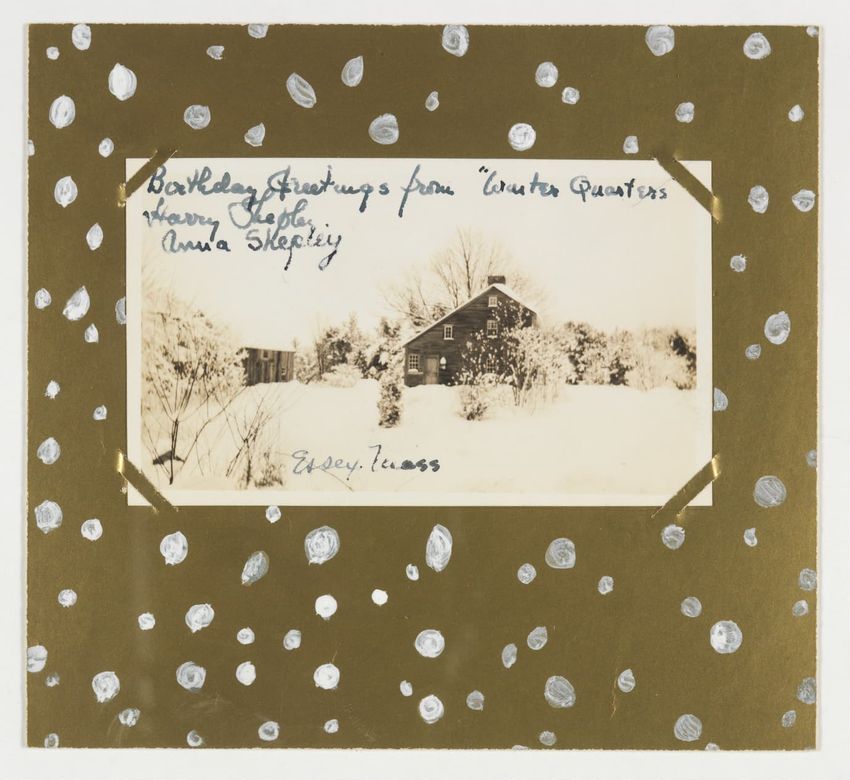 Birthday Greetings from "Winter Quarters
Harry Shepley
Anna Shepley
Essex. Mass